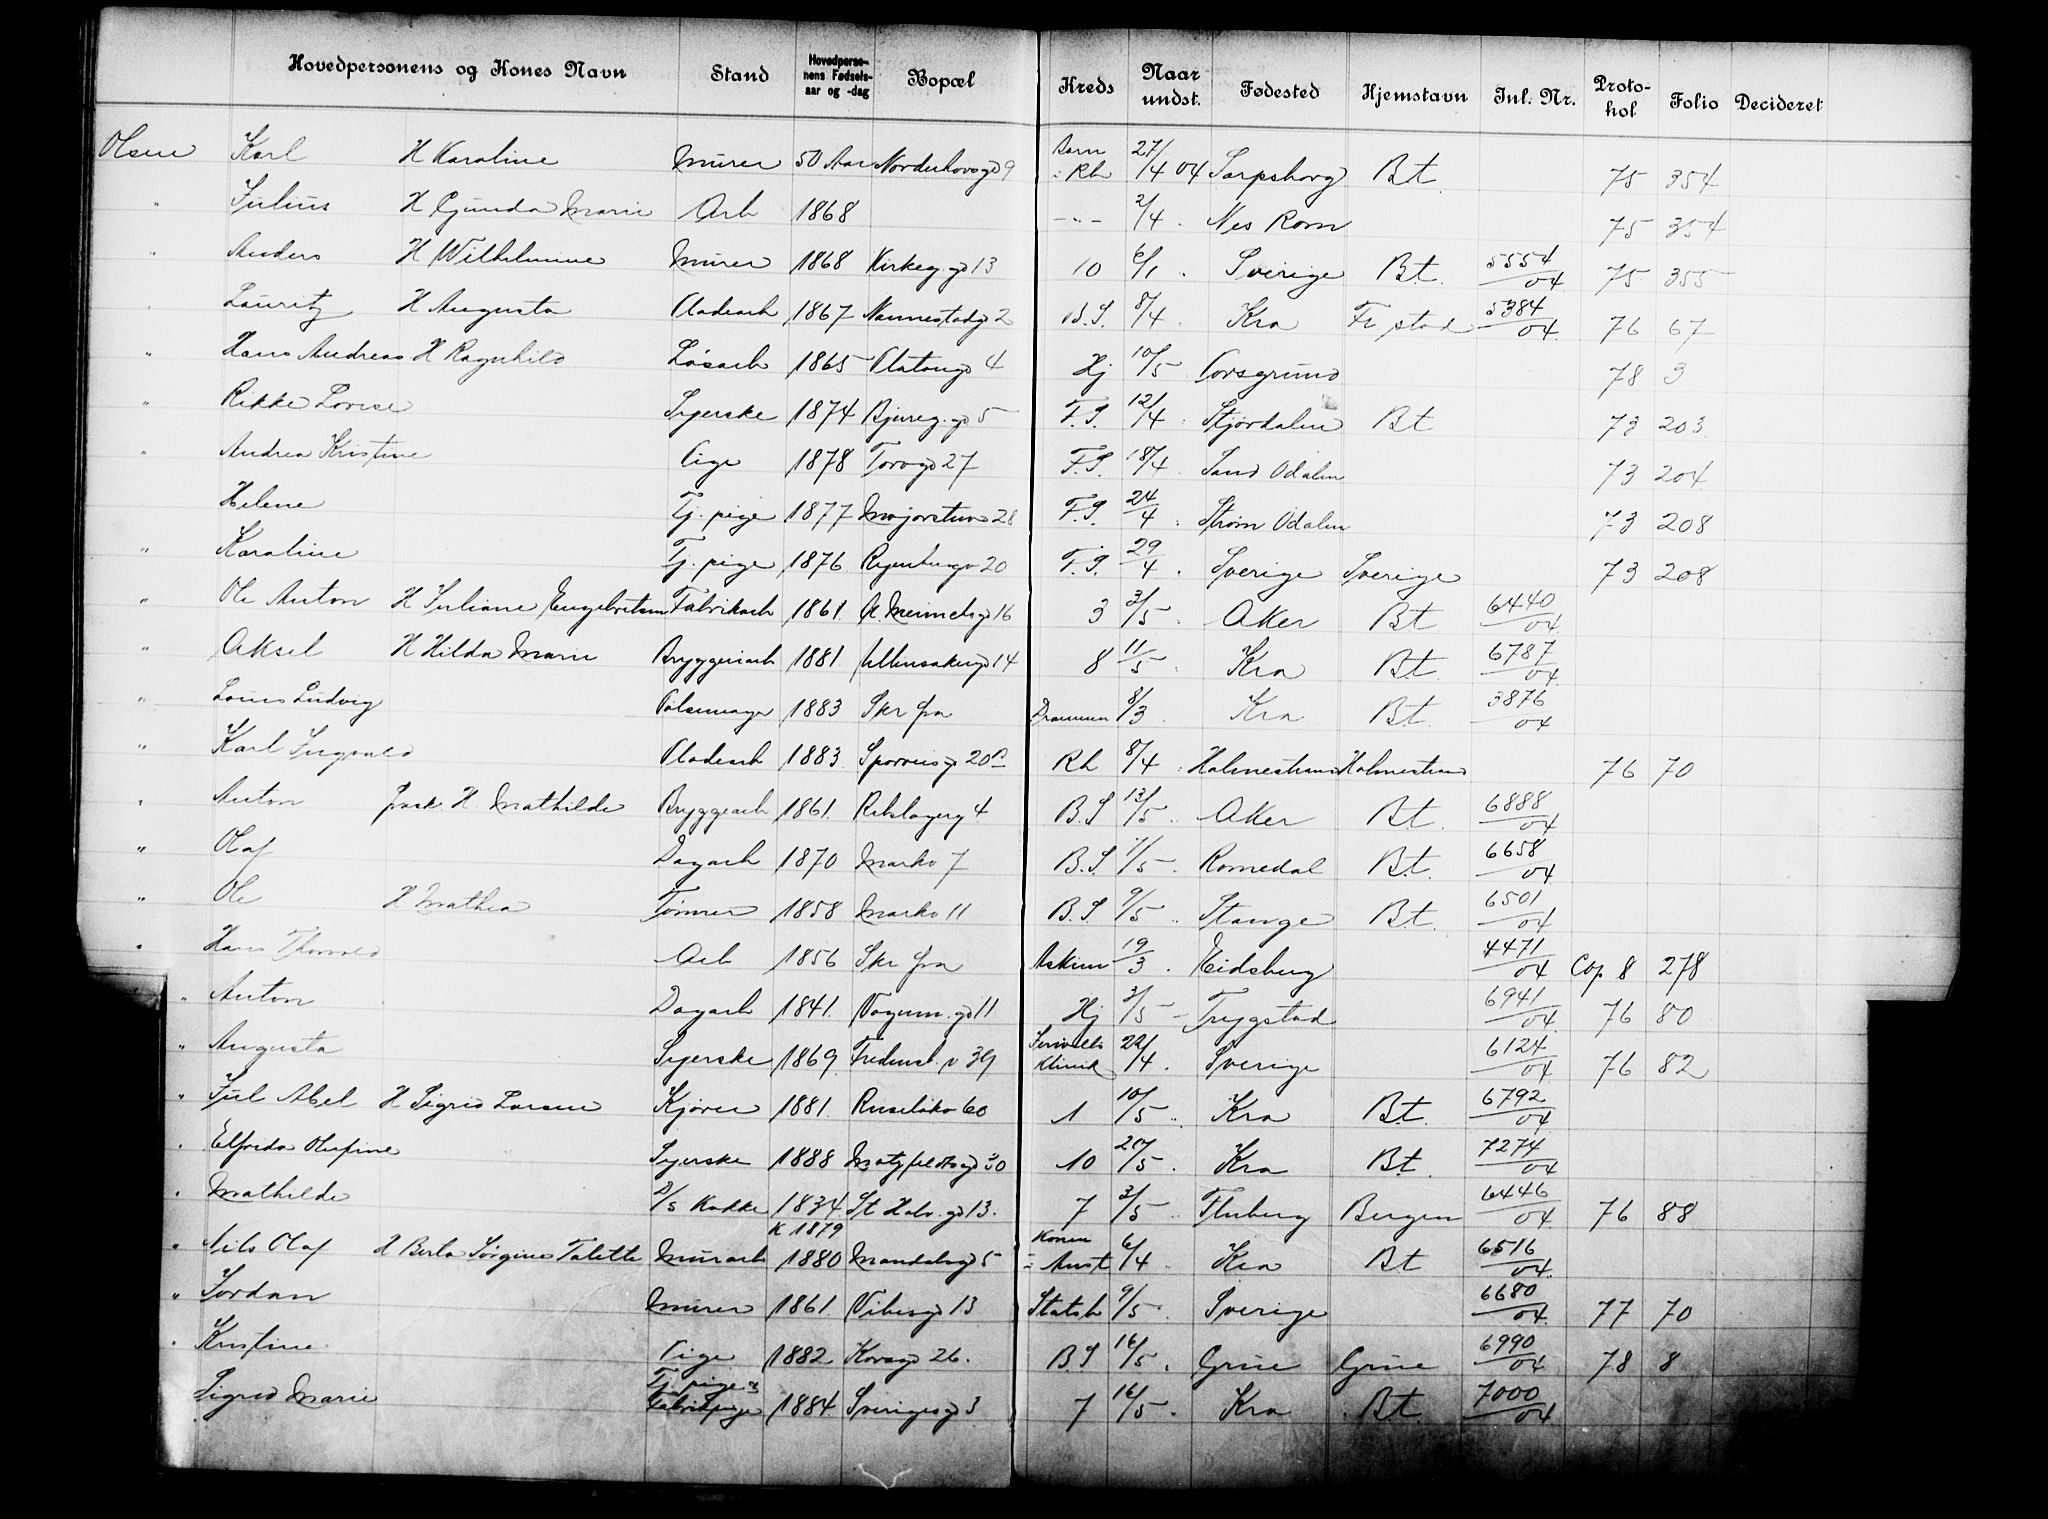 Hovedpersonens og Kones Navn Stand Hovedperso- nens Fødsels- aar og -dag Bopæl Kreds Naar undst. Fødested Hjemstavn Inl. Nr. Proto- kol Folio Decideret
Olsen Karl H Karoline Murer 50 Aar Norderhovsgd 9 Barn : Rh 27/4 04 Sarpsborg Bt. 75 354
" Julius H Gunda Marie Arb 1868 -"- 2/4 . Nes Rom 75 354
" Anders H Wilhelmine Murer 1868 Kirkeg. gd 13 10 6/1 . Sverige Bt. 5554/04 75 355
" Lauritz H Augusta Pladearb 1867 Nannestadgd 2 B.S. 8/4 . Kra Fr stad 5384/04 76 67
" Hans Andreas H Ragnhild Løsarb 1865 Platougd 4 Hj 10/5 Porsgrund 78 3
" Rikke Lovise Syerske 1874 Bjerreg. gd 5 F.S. 12/4 . Stjørdalen Bt 73 203
" Andrea Kristine Pige 1878 Torvgd 27 F.S. 18/4 . Sand Odalen 73 204
Helene Tj. pige 1877 Majorstuv 28 F.S. 24/4 . Strøm Odalen 73 208
" Karoline Tj. pige 1876 20 F.S. 29/4 . Sverige Sverige 73 208
" Ole Anton H Juliane Engebretsen Fabrikarb 1861. 16 3 3/5 . Aker Bt 6440/04
" Aksel H Hilda Marie Bryggeriarb 1881. Ullensakergd 14 8 11/5 . Kra Bt. 6787/04
" Louis Ludvig Pølsemager 1883 Skr fra Drammen 8/3 . Kra Bt. 3876/04
" Karl Ingvald Pladearb 1883. Sporveisgd 20 Rh 8/4 . Holmestrand Holmestrand 76 70
" Anton H. Mathilde Bryggearb 1861. Rebslagerg 4 B.S 13/5 .. Aker Bt. 6888/04
" Olaf Dagarb 1870 Markv 7 B.S. 11/5 . Romedal Bt. 6658/04
" Ole H Mathea Tømrer 1858 Markv 11 B.S. 9/5 .. Stange Bt. 6501/04
" Hans Thorvald Arb 1856 Skr fra Askim 19/3 . Eidsberg 4471/04 Cop 8 278
" Anton Dagarb 1841. Vognm. gd 11 Hj 3/5 - Trygstad 6941/04 76 80
" Augusta Syerske 1869. Fredensb v 39 Klinik 22/4 . Sverige 6124/04 76 82
" Jul Abel H Sigrid Larsen Kjører 1881. Ruseløkv 60 1 10/5 .. Kra Bt. 6792/04
" Elfrida Olufine Syerske 1888 Motzfeldtsgd 30 10 20/5 . Kra Bt. 7274/04
" Mathilde D/S Kokke 1834 St Halv. gd 13. 7 3/5 .. Fluberg Bergen 6446/04 76 88
" Nils Olaf H Berta Jørgine Talette Murarb K 1879 1880 Mandalsgd 5 Konen : Aust 6/4 . Kra Bt 6516/04.
" Jordan Murer 1861. Vibesgd 13 Statsh 9/5 . Sverige 6680/04 77 70
" Kristine Pige 1882 Korsgd 26. B.S 16/5 . Grue Grue 6990/04 78 8
Sigrid Marie Tj. pige & Fabrikpige 1884. Sverigesgd 3 7 16/5 . Kra . Bt. 7000/04